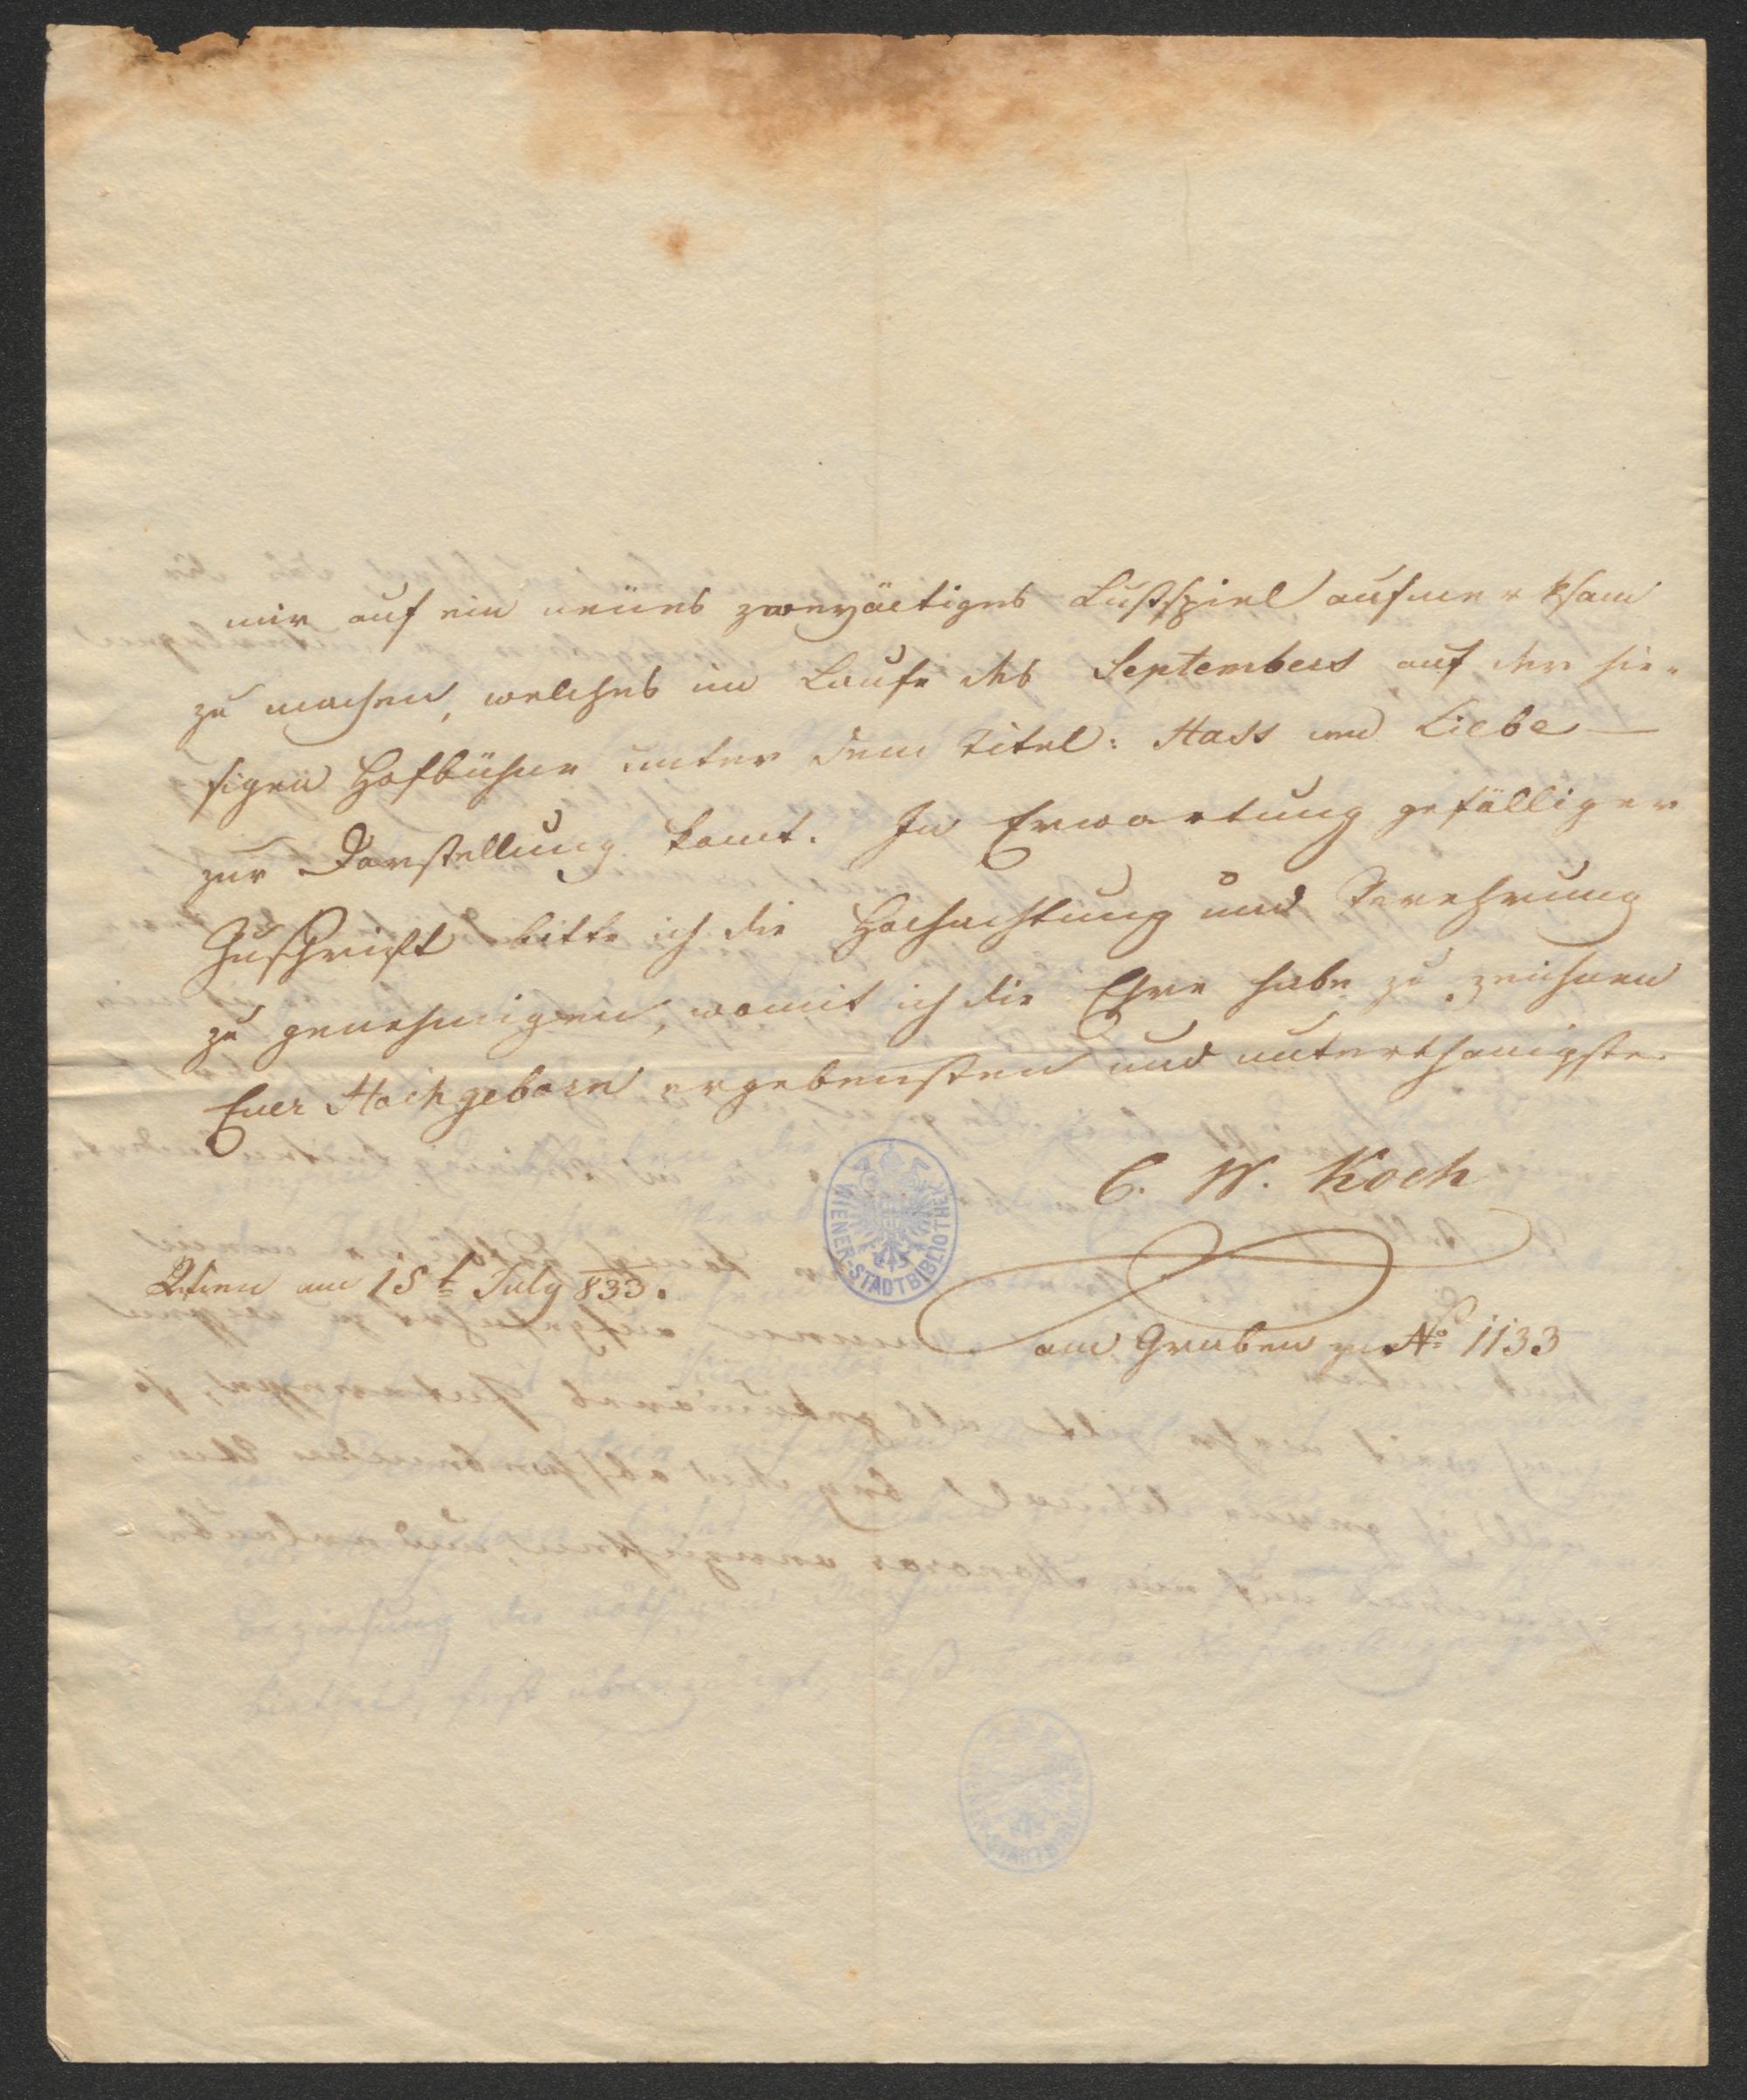 mir auf ein neües zweyäctiges Lustspiel aufmerksam
zu machen, welches im Laufe des Septembers auf der hie-
sigen Hofbühne unter dem Titel: Hass und Liebe —
zur Darstellung komt. In Erwartung gefälliger
Zuschrift bitte ich die Hochachtung und Verehrung
zu genehmigen, womit ich die Ehre habe zu zeichnen
Euer Hochgeborn ergebensten und unterthanigste
C. W. Koch
Wien am 15t July 833.
am Graben No 1133
WIENER-STADTBIBLIOTHEK